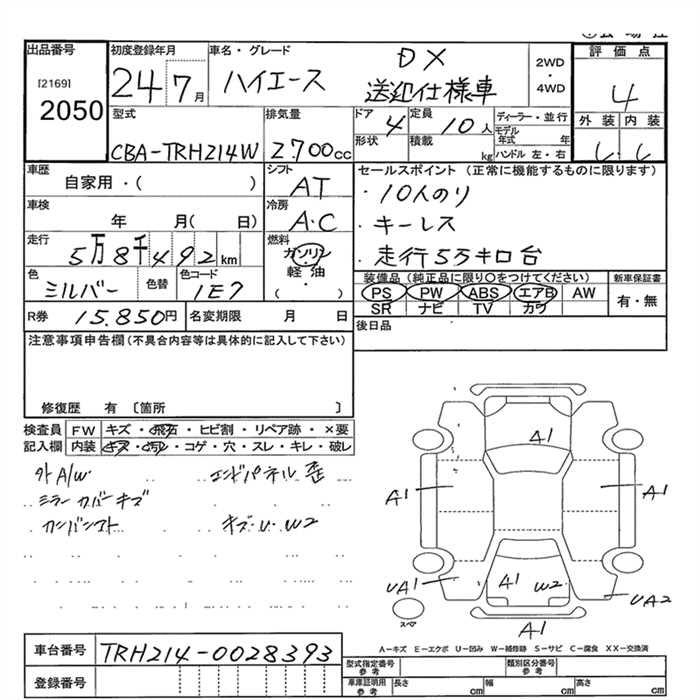 出品番号 初度登録年月 車名・グレード DX 2WD 評価点
[2169] 24 7月 ハイエース 送迎仕様車 ・4WD 4
2050
型式 排気量 ドア 4 定員 10人 ディーラー・並行 外装 内装
形状 積載 kg モデル年式 年
CBA-TRH214W 2700cc ハンドル 左・右
車歴 シフト セールスポイント (正常に機能するものに限ります)
自家用・( ) AT ・10人のり
車検 冷房 ・キーレス
年 月( 日) A・C
走行 燃料 ・走行5万キロ台
5万8千492km ガソリン
色 色替 色コード 軽油 装備品 (純正品に限り○をつけてください) 新車保証書
シルバー 1E7 ( ) PS PW ABS エアB AW 有・無
SR ナビ TV カワ
R券 15.850円 名変期限 月 日 後日品
注意事項申告欄(不具合内容等は具体的に記入して下さい)
修復歴 有 〔箇所 〕
検査員 FW キズ・飛石・ヒビ割・リペア跡・×要
記入欄 内装 キズ・汚れ・コゲ・穴・スレ・キレ・破レ
外A/W エンドパネル歪
ミラーカバーキズ
カンバンアト キズ・U・W2
A1
A1 A1
UA1 A1 W2 UA2
スペア A1
A-キズ E-エクボ U-凹み W-補修跡 S-サビ C-腐食 XX-交換済
車台番号 TRH214-0028393
型式指定番号 参考 類別区分番号 参考
登録番号 車庫証明用 参考 長さ cm 幅 cm 高さ cm